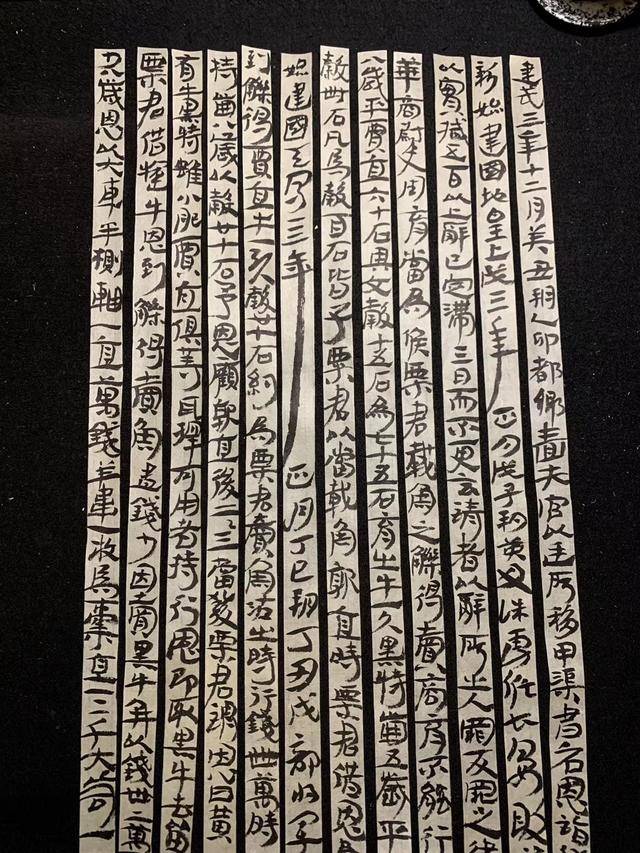 建武三年十二月癸丑朔乙卯都鄉嗇夫宮以廷所移甲渠書召恩詣
新始建國地皇上戊三年正月戊子朔
以實臧五百以上辭已定滿三日而不更言請者以辭所出入罪反罪之律
華商尉史周育當為候粟君載魚之觻得賣商育不能行
八歲平賈直六十石與交穀十五石為七十五石育出牛一頭黑特齒五歲平
穀卌石凡為穀百石皆予粟君以當載魚就直時粟君借恩為
始建國天鳳三年正月丁巳朔丁丑戊部
到觻得賈直牛一頭穀廿七石約為粟君賣魚沽出時行錢卌萬時
特齒八歲以穀廿七石予恩顧就直後二三當發粟君謂恩曰黃
育牛黑特雖小肥賈直俱等耳擇可用者持行恩即取黑牛去留
粟君借犅牛恩到觻得賣魚盡錢少因賣黑牛并以錢卅二萬
八歲恩以大車半側軸一直萬錢羊韋一枚為橐直三千大笥一